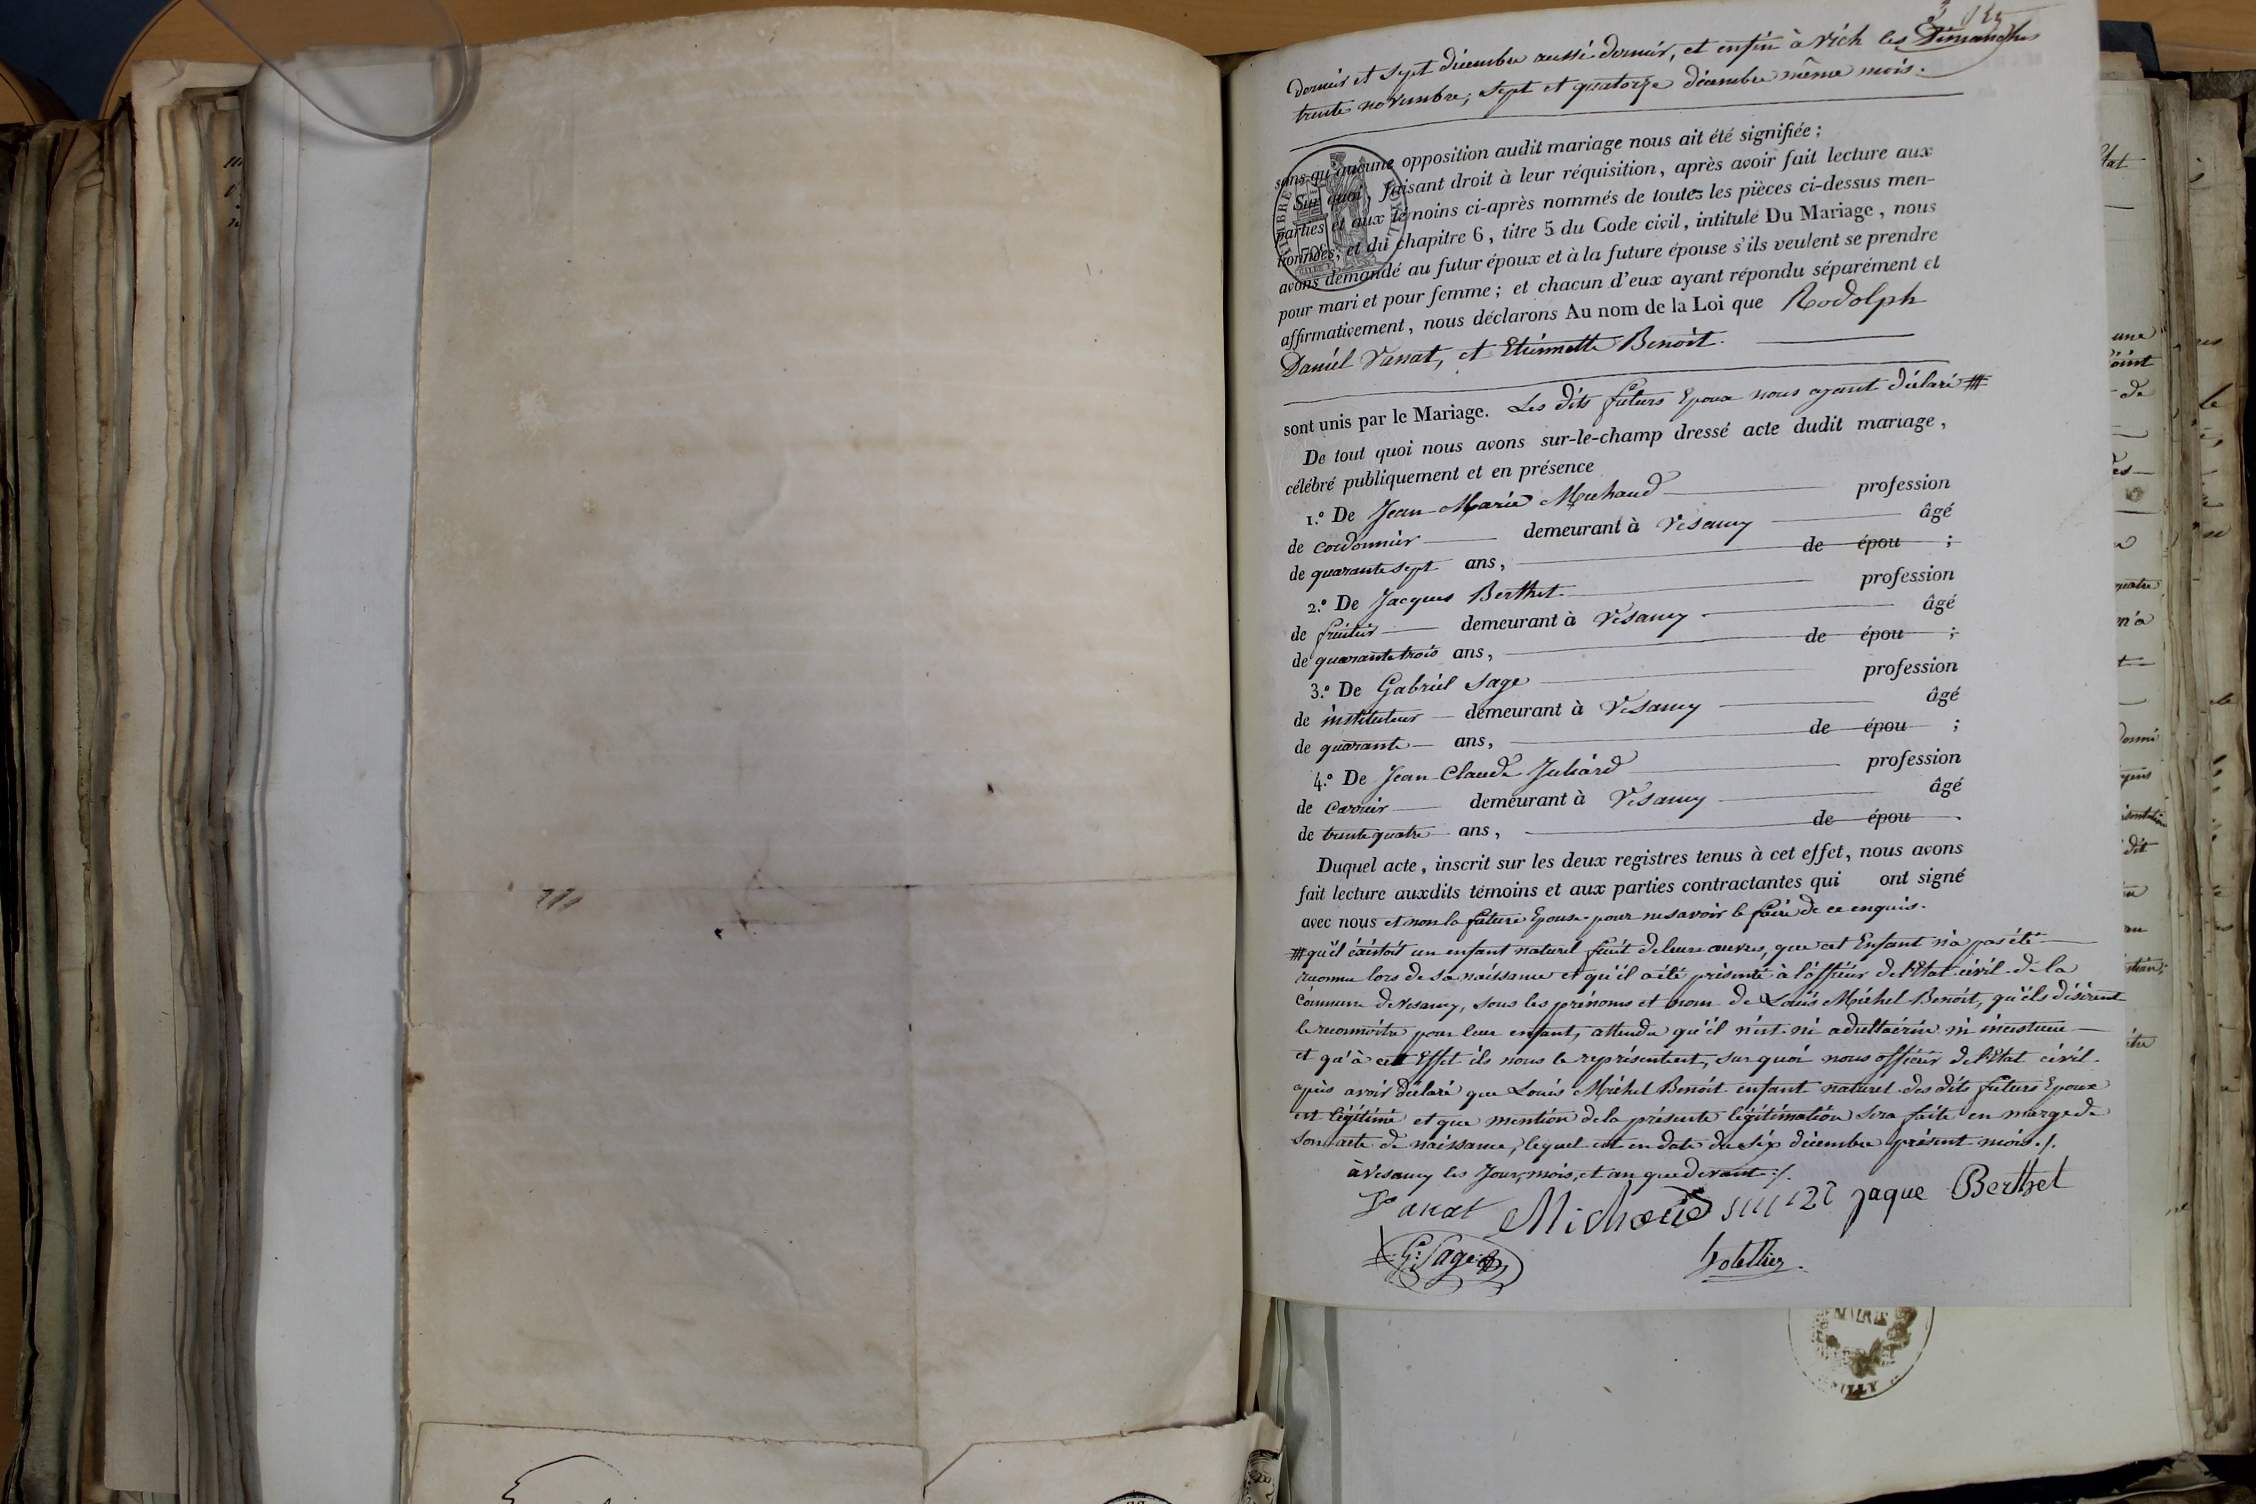 dernier et sept décembre aussi dernier, et enfin à vich les Dimanches
trente novembre, sept et quatorze décembre même mois.
sans qu'aucune opposition audit mariage nous ait été signifiée ;
Sur quoi, faisant droit à leur réquisition, après avoir fait lecture aux
parties et aux témoins ci-après nommés de toutes les pièces ci-dessus men-
tionnées, et du chapitre 6, titre 5 du Code civil, intitulé Du Mariage, nous
avons demandé au futur époux et à la future épouse s'ils veulent se prendre
pour mari et pour femme ; et chacun d'eux ayant répondu séparément et
affirmativement, nous déclarons Au nom de la Loi que Rodolph
Daniel Vanat, et Etiennette Benoit.
sont unis par le Mariage. Les dits futurs Epoux nous ayant déclaré #
De tout quoi nous avons sur-le-champ dressé acte dudit mariage,
célébré publiquement et en présence
1.º De Jean Marie Michaud profession
de cordonnier demeurant à Vesancy âgé
de quarante sept ans, de épou ;
2.º De Jacques Berthet profession
de fruitier demeurant à Vesancy âgé
de quarante trois ans, de épou ;
3.º De Gabriel Sage profession
de instituteur demeurant à Vesancy âgé
de quarante ans, de épou ;
4.º De Jean Claude Juliard profession
de carrier demeurant à Vesancy âgé
de trente quatre ans, de épou .
Duquel acte, inscrit sur les deux registres tenus à cet effet, nous avons
fait lecture auxdits témoins et aux parties contractantes qui ont signé
avec nous et non la future Epouse pour ne savoir le faire de ce enquis.
# qu'il éxistoit un enfant naturel fruit de leurs œuvres, que cet Enfant n'a pas été
reconnu lors de sa naissance et qu'il a été présenté à l'officier de l'Etat civil de la
Commune de Vesancy, sous les prénoms et nom de Louis Michel Benoit, qu'ils désirent
le reconnoitre pour leur enfant, attendu qu'il n'est ni adultairin ni incestueu
et qu'à cet Effet ils nous le représentent, sur quoi nous officier de l'Etat civil
après avoir déclaré que Louis Michel Benoit enfant naturel des dits futurs Epoux
est légitimé et que mention de la présente légitimation sera faite en marge de
son acte de naissance, lequel est en date du six décembre présent mois./.
à Vesancy les Jour, mois, et an que devant./.
Vanat Michaud jaque Berthet
G: Sage